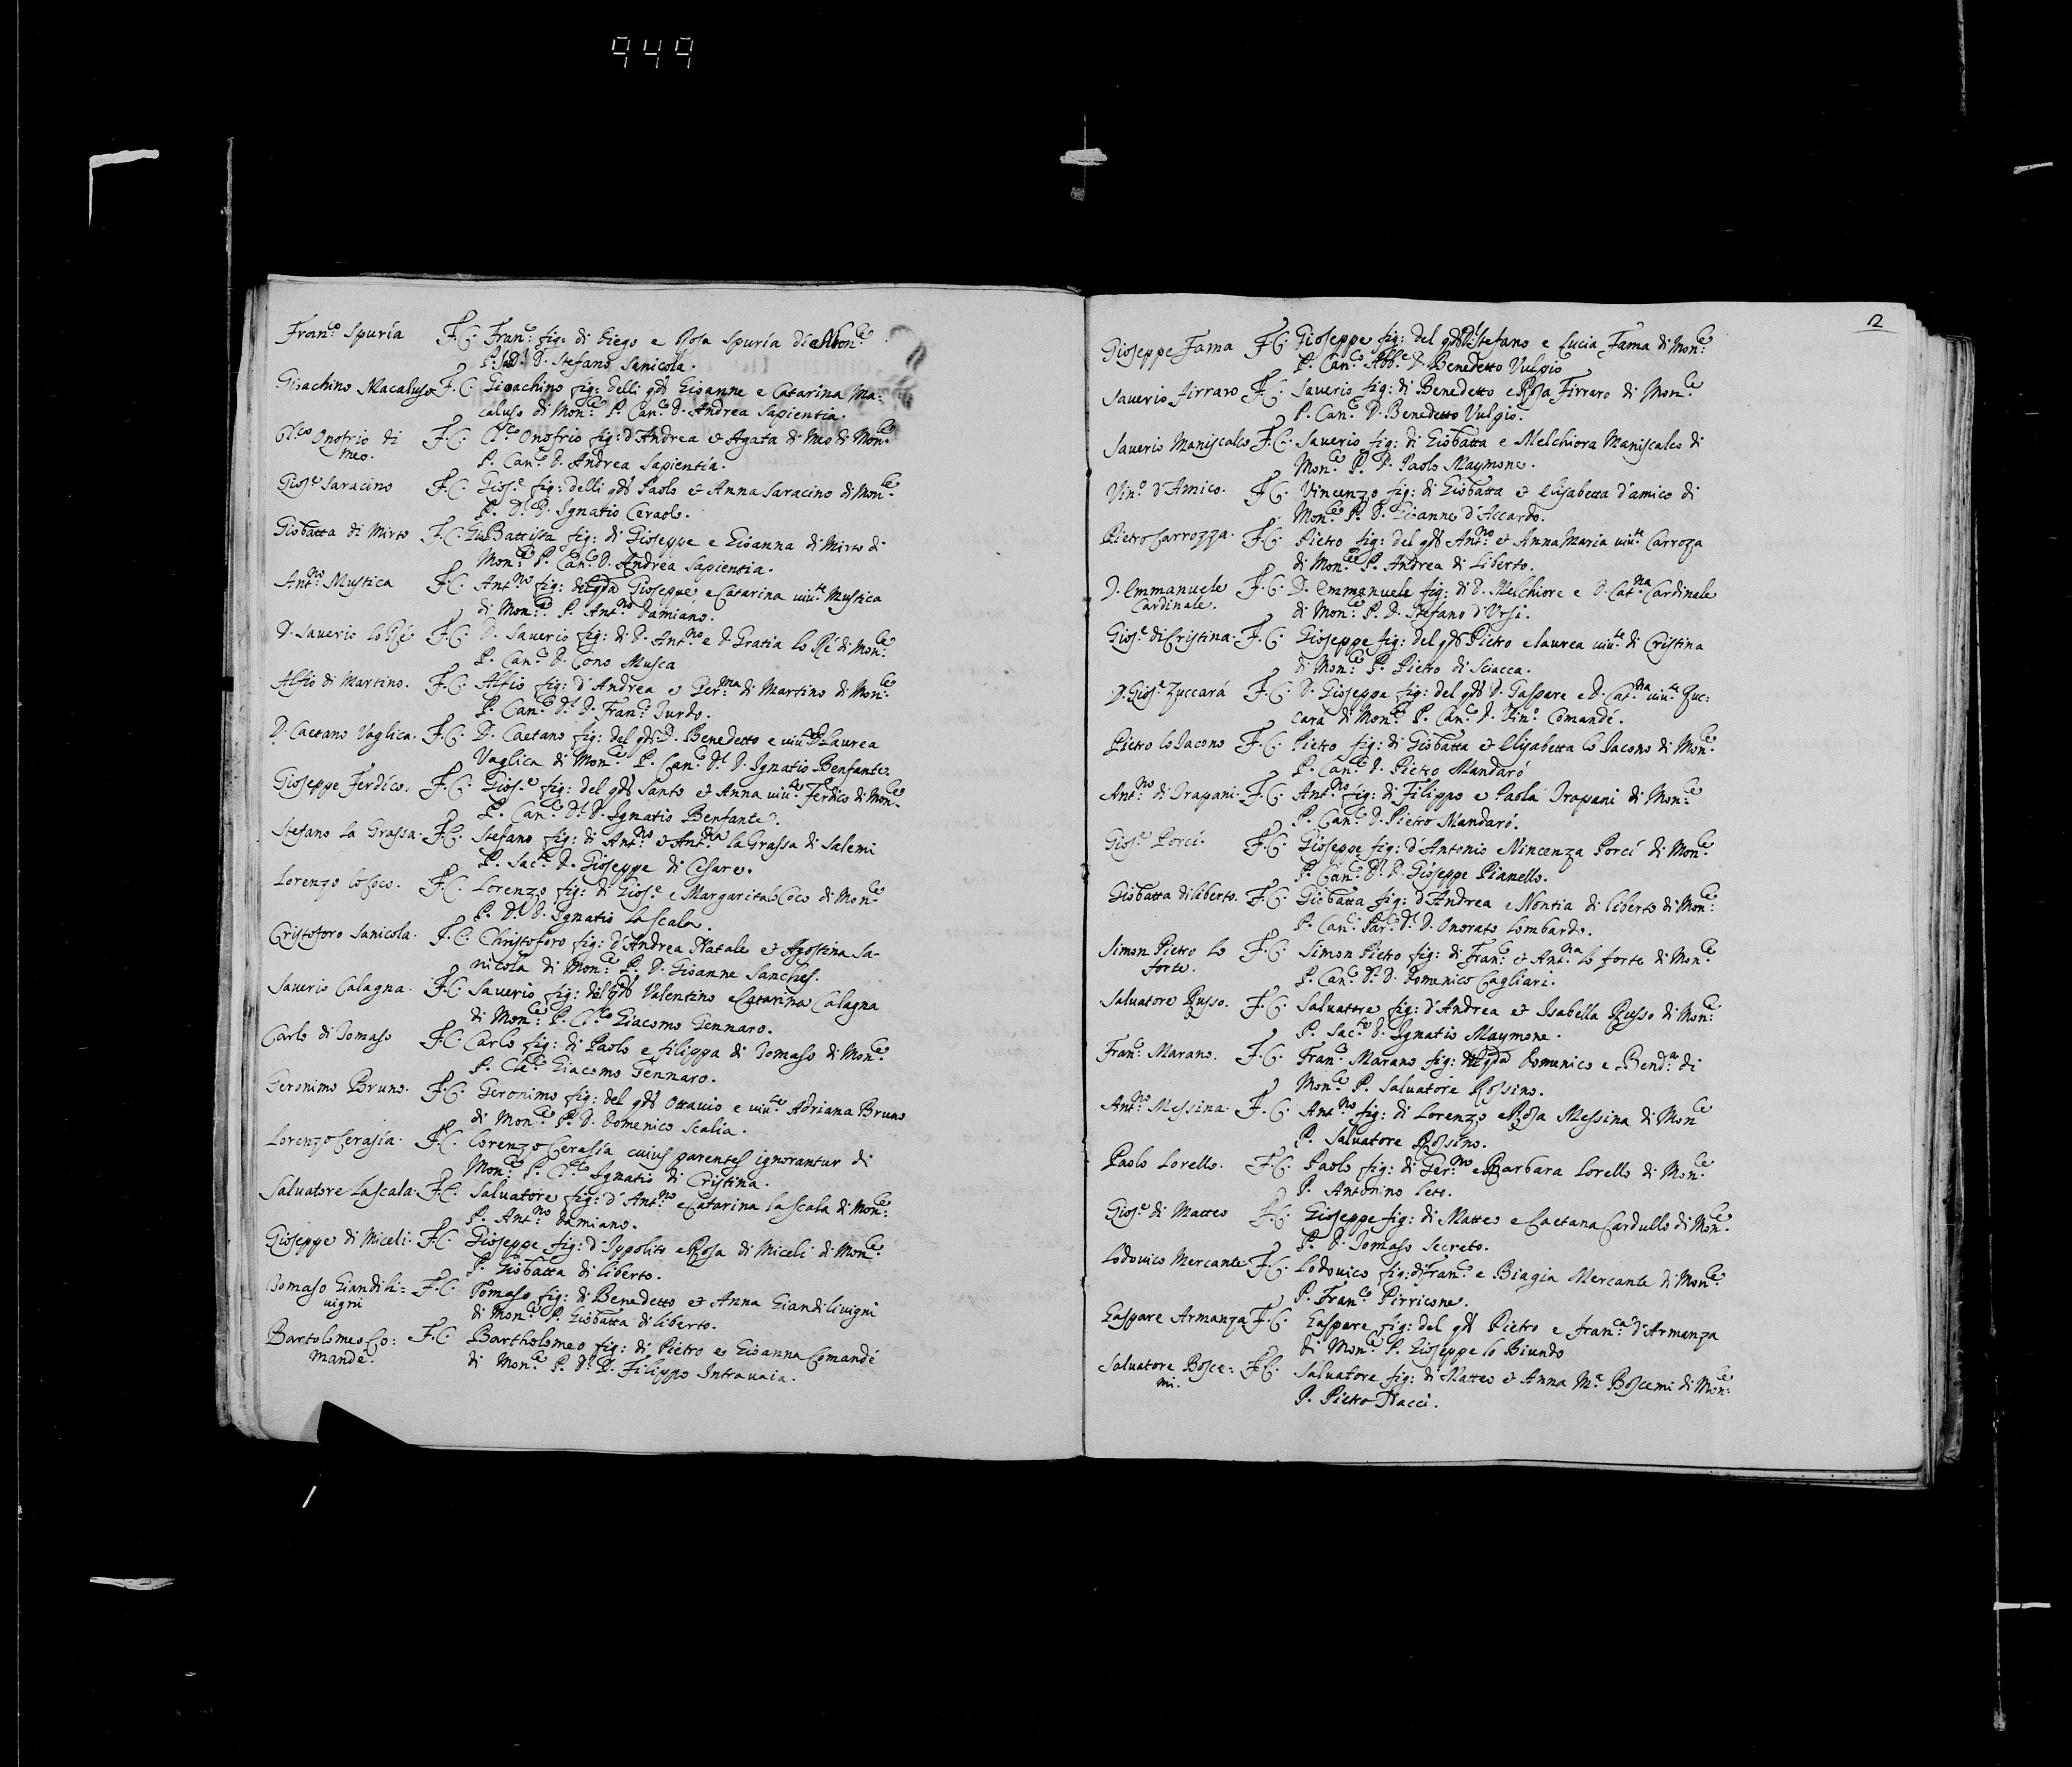 949
Fran.co Spuria F.C. Fran.co fig: di Diego e Rosa Spuria di Mon.le
P. D. Stefano Sanicola.
Gioachino Macaluso F.C. Gioachino fig: delli qd. Gioanne e Catarina Ma:
caluso di Mon.le P. Can.co D. Andrea Sapientia.
Cl.co Onofrio di F.C. Cl.co Onofrio fig: d'Andrea et Agata di Meo di Mon.le
Meo. P. Can.co D. Andrea Sapientia.
Gios.e Saracino F.C. Gios.e fig: delli qd. Paolo et Anna Saracino di Mon.le
P. D.r D. Ignatio Ceraolo.
Giobatta di Mirto F.C. Gio:Battista fig: di Gioseppe e Gioanna di Mirto di
Mon.le P. Can.co D. Andrea Sapientia.
Ant.no Mustica F.C. Ant.no fig: del qd. Gioseppe e Catarina viu.te Mustica
di Mon.le P. Ant.no Damiano.
D. Saverio lo Ré F.C. D. Saverio fig: di D. Ant.no e D. Gratia lo Ré di Mon.le
P. Can.co D. Cono Musca
Alfio di Martino. F.C. Alfio fig: d'Andrea e Ger.ma di Martino di Mon.le
P. Can.co D.r D. Fran.co Turdo.
D. Caetano Vaglica. F.C. D. Caetano fig: del qd. D. Benedetto e viu.te D. Laurea
Vaglica di Mon.le P. Can.co D.r D. Ignatio Benfante.
Gioseppe Ferdico. F.C. Gios.e fig: del qd. Santo et Anna viu.te Ferdico di Mon.le
P. Can.co D.r D. Ignatio Benfante.
Stefano la Grassa. F.C. Stefano fig: di Ant.no et Ant.na la Grassa di Salemi
P. Sac.te D. Gioseppe di Cesare.
Lorenzo lo Coco. F.C. Lorenzo fig: di Gios.e e Margarita lo Coco di Mon.le
P. D.r D. Ignatio la Scala.
Cristoforo Sanicola. F.C. Christoforo fig: d'Andrea Natale et Agostina Sa-
nicola di Mon.le P. D. Gioanne Sanches.
Saverio Calagna. F.C. Saverio fig: del qd. Valentino e Catarina Calagna
di Mon.le P. Cl.co Giacomo Gennaro.
Carlo di Tomaso F.C. Carlo fig: di Paolo e Filippa di Tomaso di Mon.le
P. Cl.co Giacomo Gennaro.
Geronimo Bruno. F.C. Geronimo fig: del qd. Ottavio e viu.te Adriana Bruno
di Mon.le P. D. Domenico Scalia.
Lorenzo Cerasia. F.C. Lorenzo Cerasia cuius parentes ignorantur di
Mon.le P. Cl.co Ignatio di Cristina.
Salvatore la Scala. F.C. Salvatore fig: d'Ant.no e Catarina la Scala di Mon.le
P. Ant.no Damiano.
Gioseppe di Miceli. F.C. Gioseppe fig: d'Ippolito e Rosa di Miceli di Mon.le
P. Giobatta di Liberto.
Tomaso Giandili= F.C. Tomaso fig: di Benedetto et Anna Giandilivigni
vigni di Mon.le P. Giobatta di Liberto.
Bartolomeo Co: F.C. Bartholomeo fig: di Pietro e Gioanna Comandé
mandé. di Mon.le P. D.r D. Filippo Intravaia.
12
Gioseppe Fama F.C. Gioseppe fig: del qd. Stefano e Lucia Fama di Mon.le
P. Can.co Abb.e D. Benedetto Vulpio
Saverio Firraro F.C. Saverio fig: di Benedetto e Rosa Firraro di Mon.le
P. Can.co D. Benedetto Vulpio.
Saverio Maniscalco F.C. Saverio fig: di Giobatta e Melchiora Maniscalco di
Mon.le P. D. Paolo Maymone.
Vin.o d'Amico. F.C. Vincenzo fig: di Giobatta et Elisabetta d'Amico di
Mon.le P. D. Gioanne d'Accardo.
Pietro Carrozza. F.C. Pietro fig: del qd. Ant.no et Anna Maria viu.te Carroza
di Mon.le P. Andrea di Liberto.
D. Emmanuele F.C. D. Emmanuele fig: di D. Melchiore e D. Cat.na Cardinale
Cardinale. di Mon.le P. D. Stefano d'Ursi.
Gios.e di Cristina. F.C. Gioseppe fig: del qd. Pietro e Laurea viu.te di Cristina
di Mon.le P. Pietro di Sciacca.
D. Gios.e Zuccará F.C. D. Gioseppe fig: del qd. D. Gaspare e D. Cat.na viu.te Zuc:
cará di Mon.le P. Can.co D. Vin.o Comandé.
Pietro lo Iacono F.C. Pietro fig: di Giobatta et Elisabetta lo Iacono di Mon.le
P. Can.co D. Pietro Mandaró
Ant.no di Trapani. F.C. Ant.no fig: di Filippo e Paola Trapani di Mon.le
P. Can.co D. Pietro Mandaró.
Gios.e Porcí. F.C. Gioseppe fig: d'Antonio e Vincenza Porcí di Mon.le
P. Can.co D.r D. Gioseppe Pianello.
Giobatta di Liberto. F.C. Giobatta fig: d'Andrea e Nontia di Liberto di Mon.le
P. Can.co Par.o D.r D. Onorato Lombardo.
Simon Pietro lo F.C. Simon Pietro fig: di Fran.co et Ant.na lo Forte di Mon.le
Forte. P. Can.co D.r D. Domenico Cagliari.
Salvatore Russo. F.C. Salvatore fig: d'Andrea et Isabella Russo di Mon.le
P. Sac.te D. Ignatio Maymone.
Fran.co Marano. F.C. Fran.co Marano fig: del qd. Domenico e Bend.a di
Mon.le P. Salvatore Rossino.
Ant.no Messina. F.C. Ant.no fig: di Lorenzo e Rosa Messina di Mon.le
P. Salvatore Rossino.
Paolo Lorello. F.C. Paolo fig: di Ger.mo e Barbara Lorello di Mon.le
P. Antonino Leto.
Gios.e di Matteo F.C. Gioseppe fig: di Matteo e Caetana Cardullo di Mon.le
P. D. Tomaso Secreto.
Lodovico Mercante F.C. Lodovico fig: di Fran.co e Biagia Mercante di Mon.le
P. Fran.co Pirricone.
Gaspare Armanza F.C. Gaspare fig: del qd. Pietro e Fran.ca d'Armanza
di Mon.le P. Gioseppe lo Biundo
Salvatore Bosce= F.C. Salvatore fig: di Matteo et Anna M.a Boscemi di Mon.le
mi. P. Pietro Nacci.